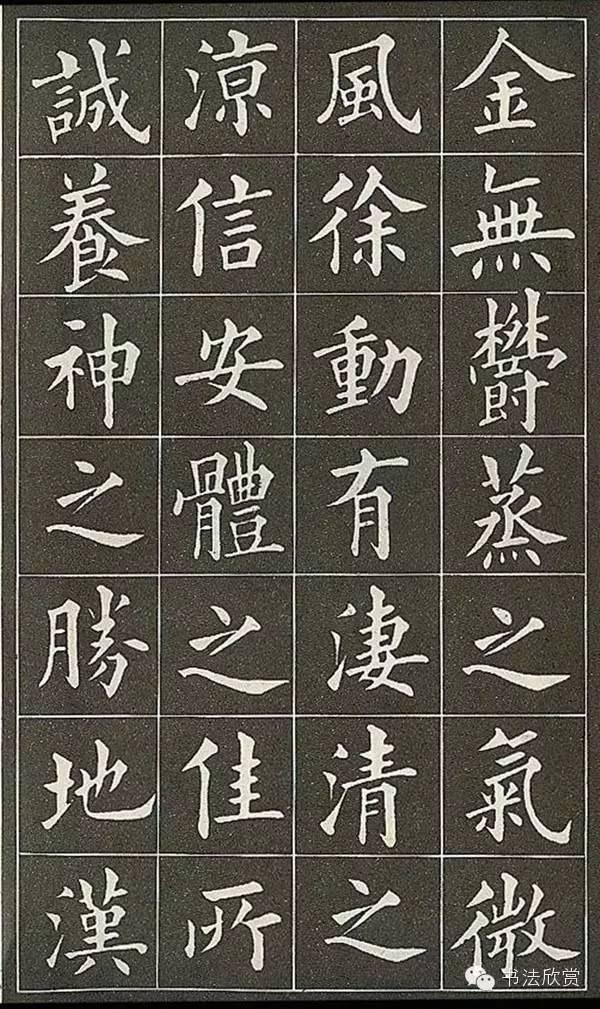 金無鬱蒸之氣微
風徐動有淒清之
涼信安體之佳所
誠養神之勝地漢
书法欣赏